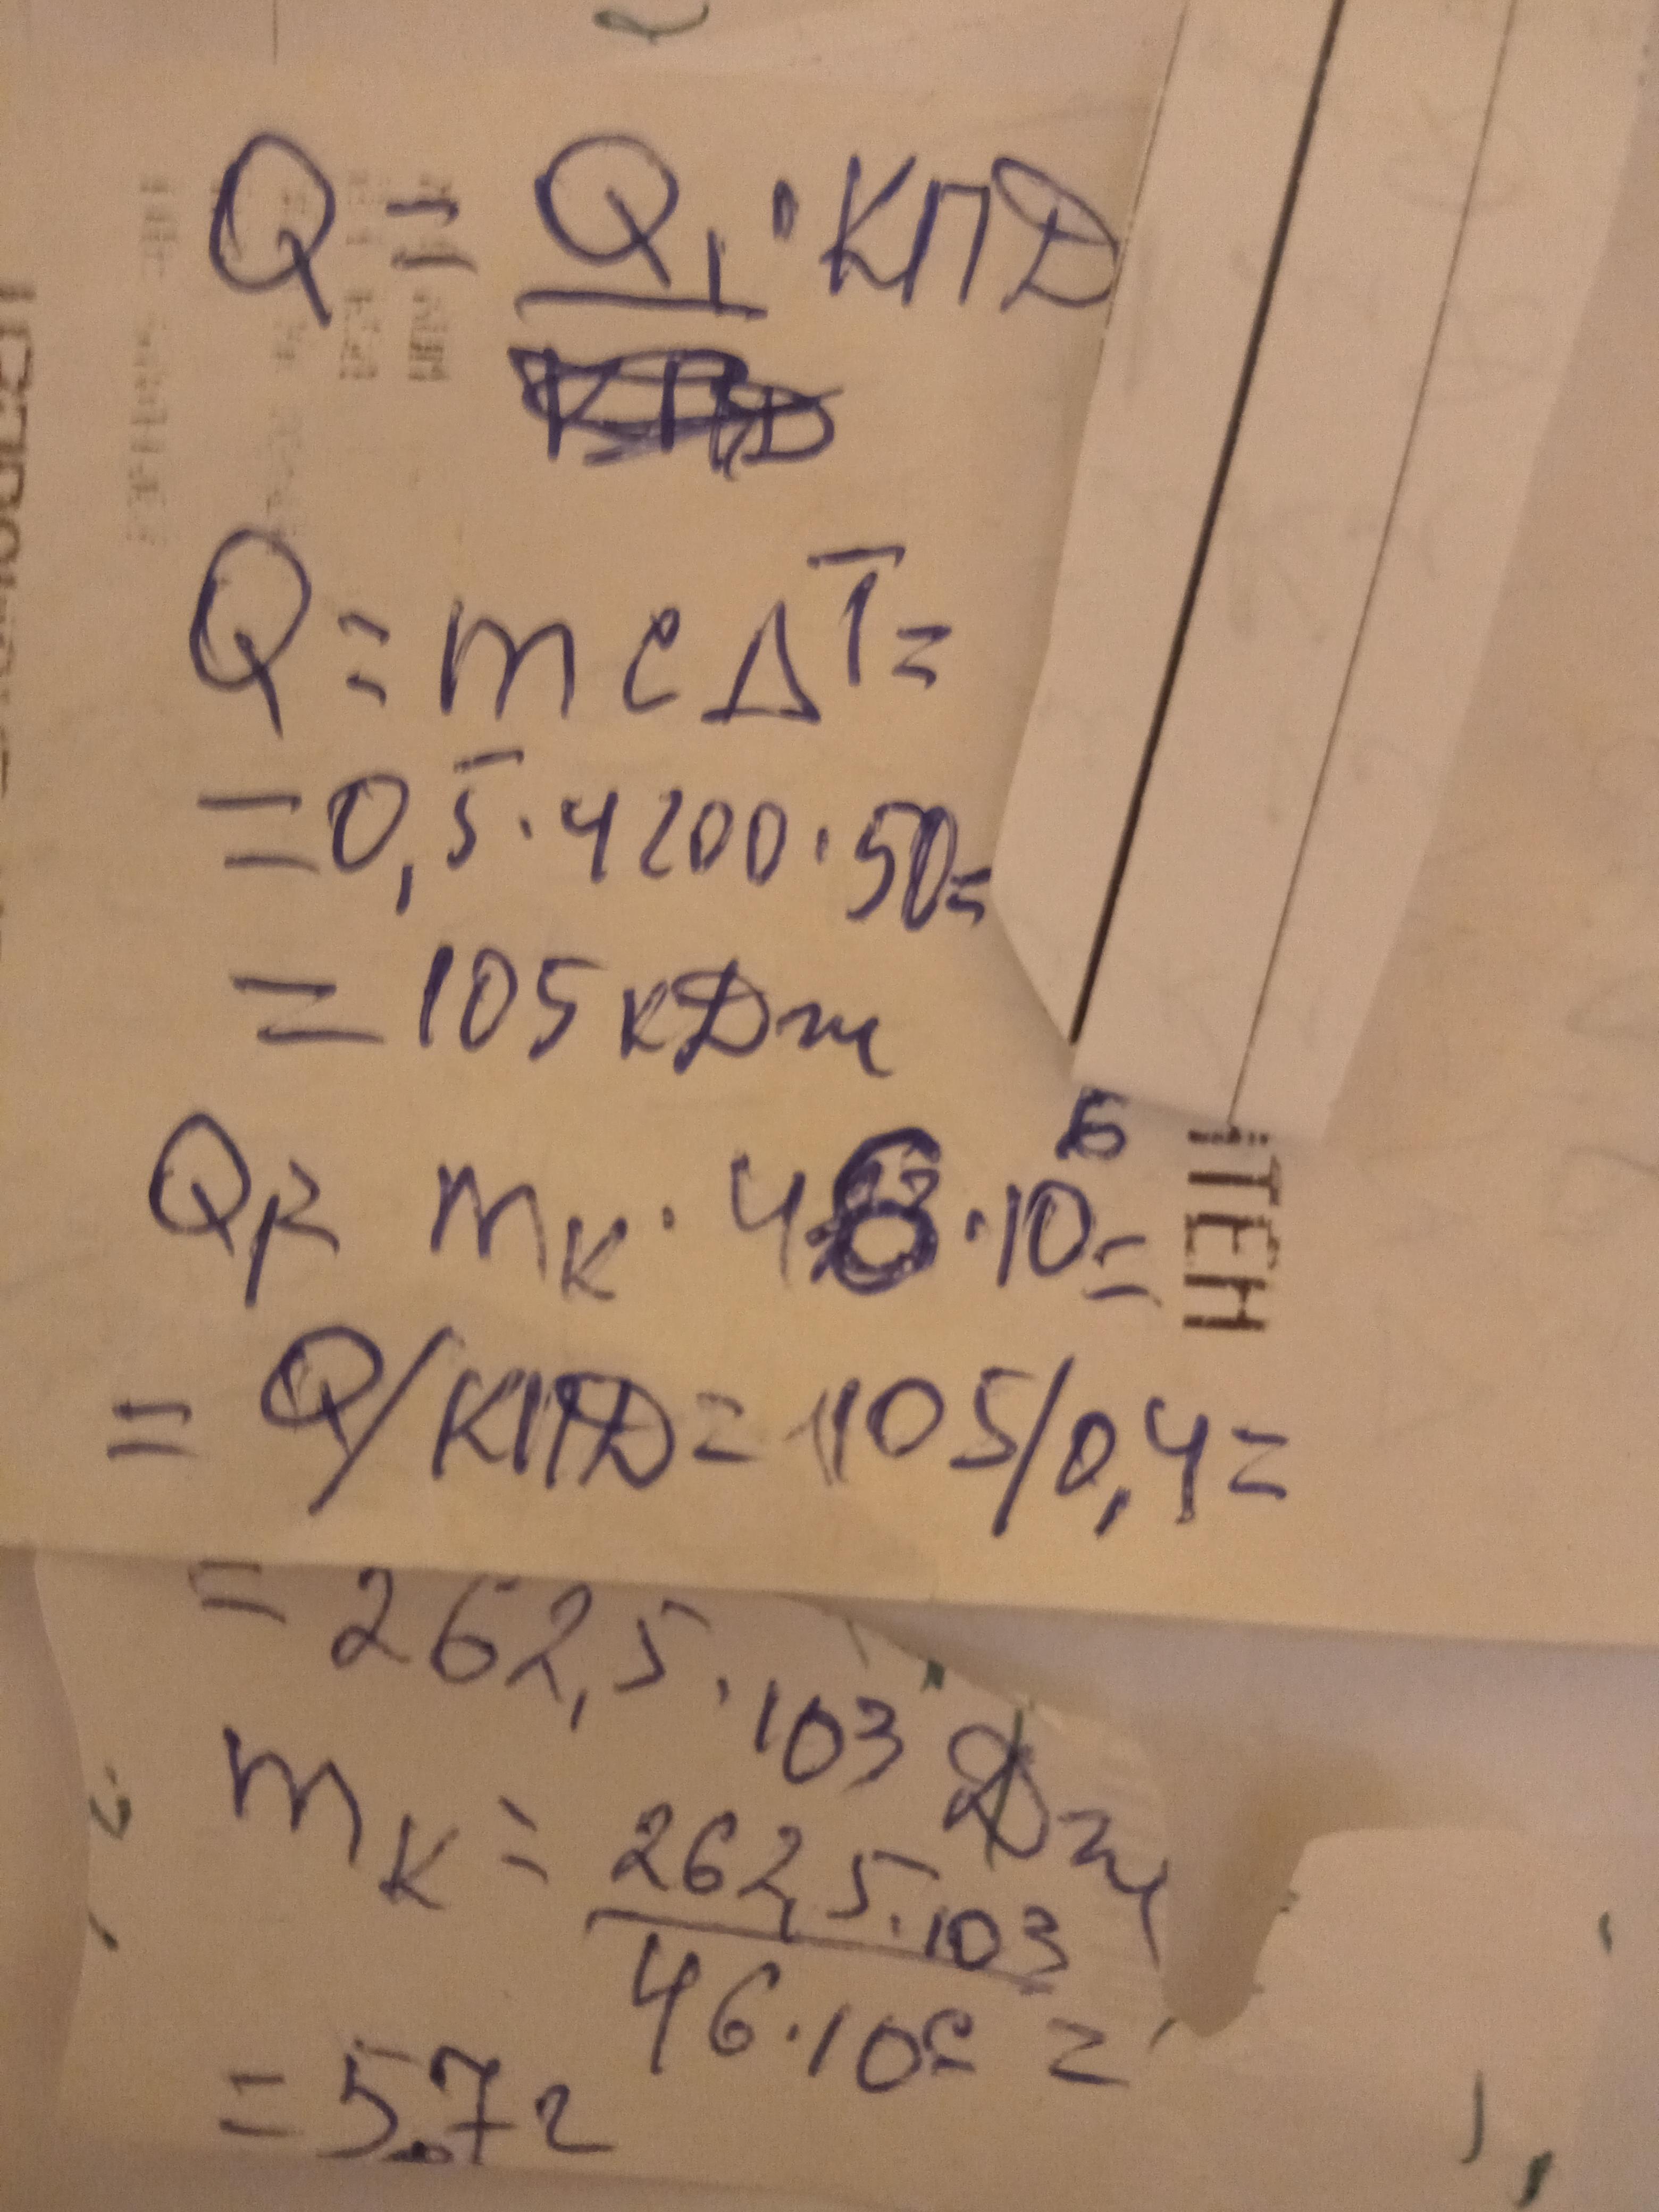 Q = Q₁ · КПД
Q = m c ΔT =
= 0,5 · 4200 · 50 =
= 105 кДж
Q₁ = mк · 46 · 10⁶ =
ITEH
= Q/КПД = 105/0,4 =
= 262,5 · 10³ Дж
mк = 262,5 · 10³ / 46 · 10⁶ =
= 5.7 г